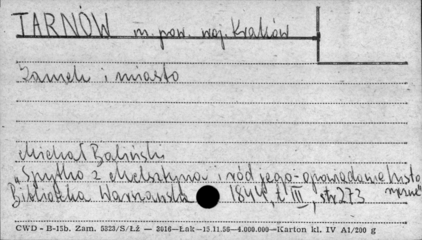 TARNÓW m. pow. woj. Kraków
Zamek i miasto
Michał Baliński
„Spytko z Melsztyna i ród jego - opowiadanie histo
ryczne"
Biblioteka Warszawska 1844, t. III, str 273
CWD - B-15b. Zam. 5323/S/Łż — 3016-Łak-15.11.56-4.000.000-Karton kl. IV A1/200 g